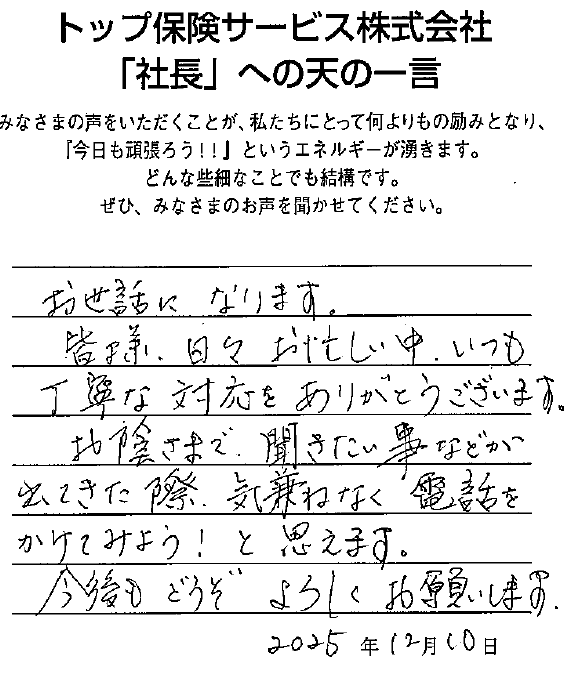 トップ保険サービス株式会社
「社長」への天の一言
みなさまの声をいただくことが、私たちにとって何よりもの励みとなり、
『今日も頑張ろう！！』というエネルギーが湧きます。
どんな些細なことでも結構です。
ぜひ、みなさまのお声を聞かせてください。
お世話に なります。
皆様、日々 お忙しい中、いつも
丁寧な 対応を ありがとうございます。
お陰さまで、聞きたい事などが
出てきた際、気兼ねなく 電話を
かけてみよう！と 思えます。
今後も どうぞ よろしく お願いします。
2025年12月10日